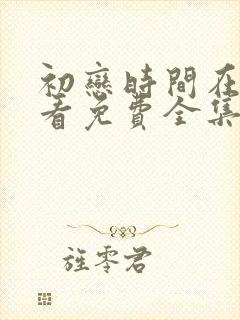 初戀時間在
看免費全集
旌零君